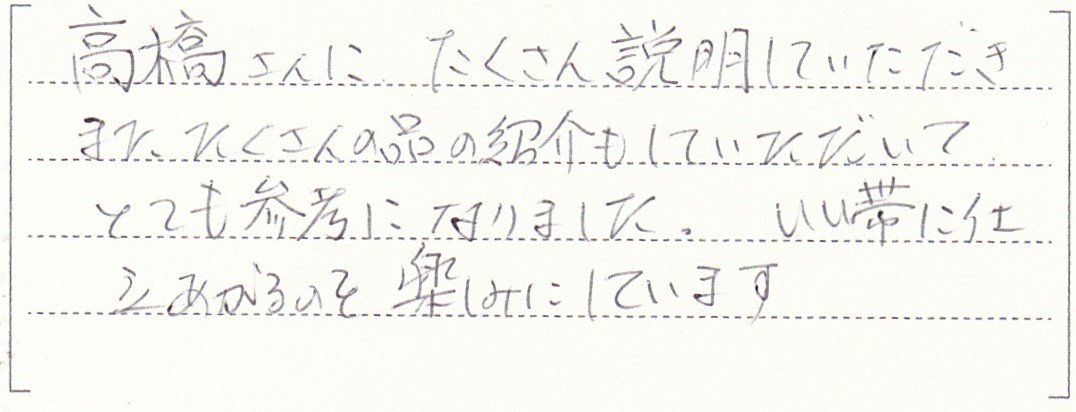 高橋さんに たくさん説明していただき
また、たくさんの品の紹介もしていただいて
とても参考になりました。 いい帯に仕
立あがるのを楽しみにしています